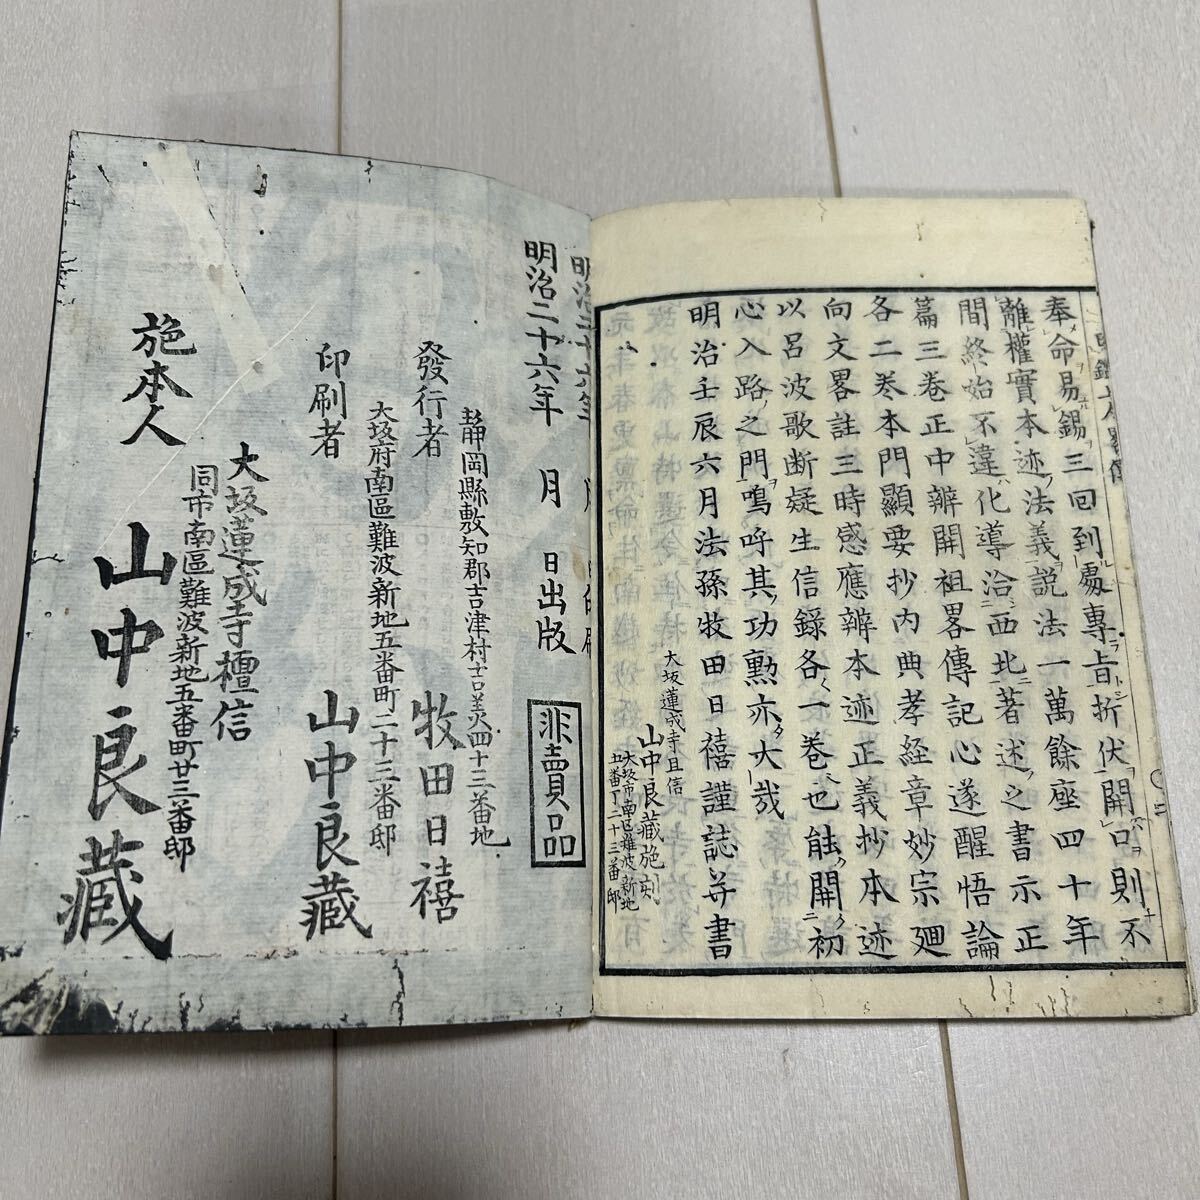 奉命易錫三回到處專旨折伏開口則不
離權實本迹法義說法一萬餘座四十年
間終始不違化導洽西北著述之書示正
篇三卷正中辨開祖畧傳記心遂醒悟論
各二卷本門顯要抄內典孝経章妙宗廻
向文畧註三時感應辨本迹正義抄本迹
以呂波歌断疑生信錄各一卷也能開初
心入路之門鳴呼其功勲亦大哉
明治壬辰六月法孫牧田日禧謹誌并書
大坂蓮成寺旦信
山中良藏施刻
大坂市南区難波新地
五番丁二十三番邸
明治二十六年 月 日印刷
明治二十六年 月 日出版
非賣品
靜岡縣敷知郡吉津村吉美四十三番地
發行者 牧田日禧
大坂府南區難波新地五番町二十三番邸
印刷者 山中良藏
大坂蓮成寺檀信
同市南區難波新地五番町廿三番邸
施本人 山中良藏